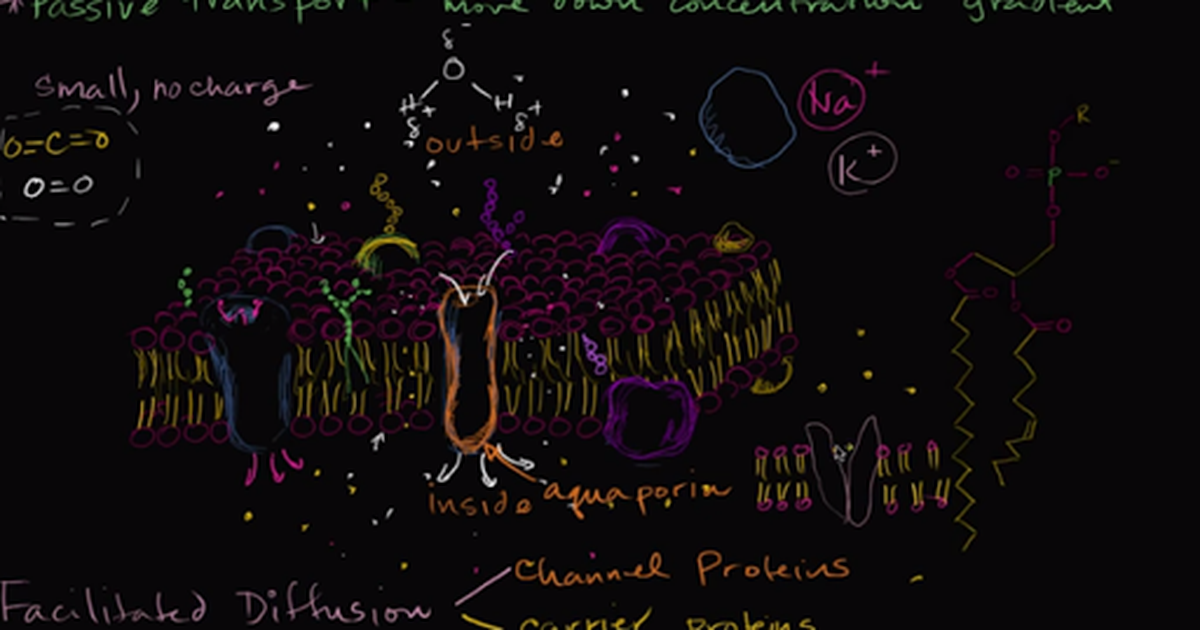 *Passive Transport - move down concentration gradient
Small, no charge
O=C=O
O=O
δ-
O
H H
δ+ δ+
outside
Na+
K+
R
O
O=P-O-
O
O
O
O
O
inside
aquaporin
Facilitated Diffusion
Channel Proteins
carrier proteins